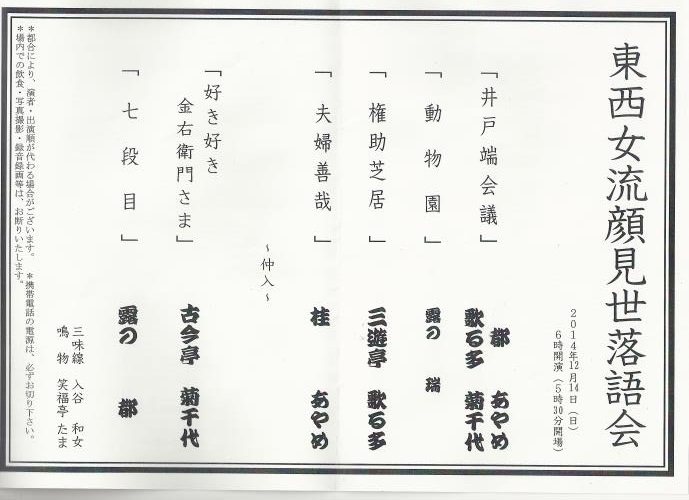 東西女流顔見世落語会
2014年12月14日(日)
6時開演(5時30分開場)
「井戸端会議」
都 あやめ
歌る多 菊千代
「動物園」 露の 瑞
「権助芝居」 三遊亭 歌る多
「夫婦善哉」 桂 あやめ
~仲入~
「好き好き
金右衛門さま」 古今亭 菊千代
「七段目」 露の 都
三味線 入谷 和女
鳴物 笑福亭 たま
*都合により、演者・出演順が代わる場合がございます。 *携帯電話の電源は、必ずお切り下さい。
*場内での飲食・写真撮影・録音録画等は、お断りいたします。